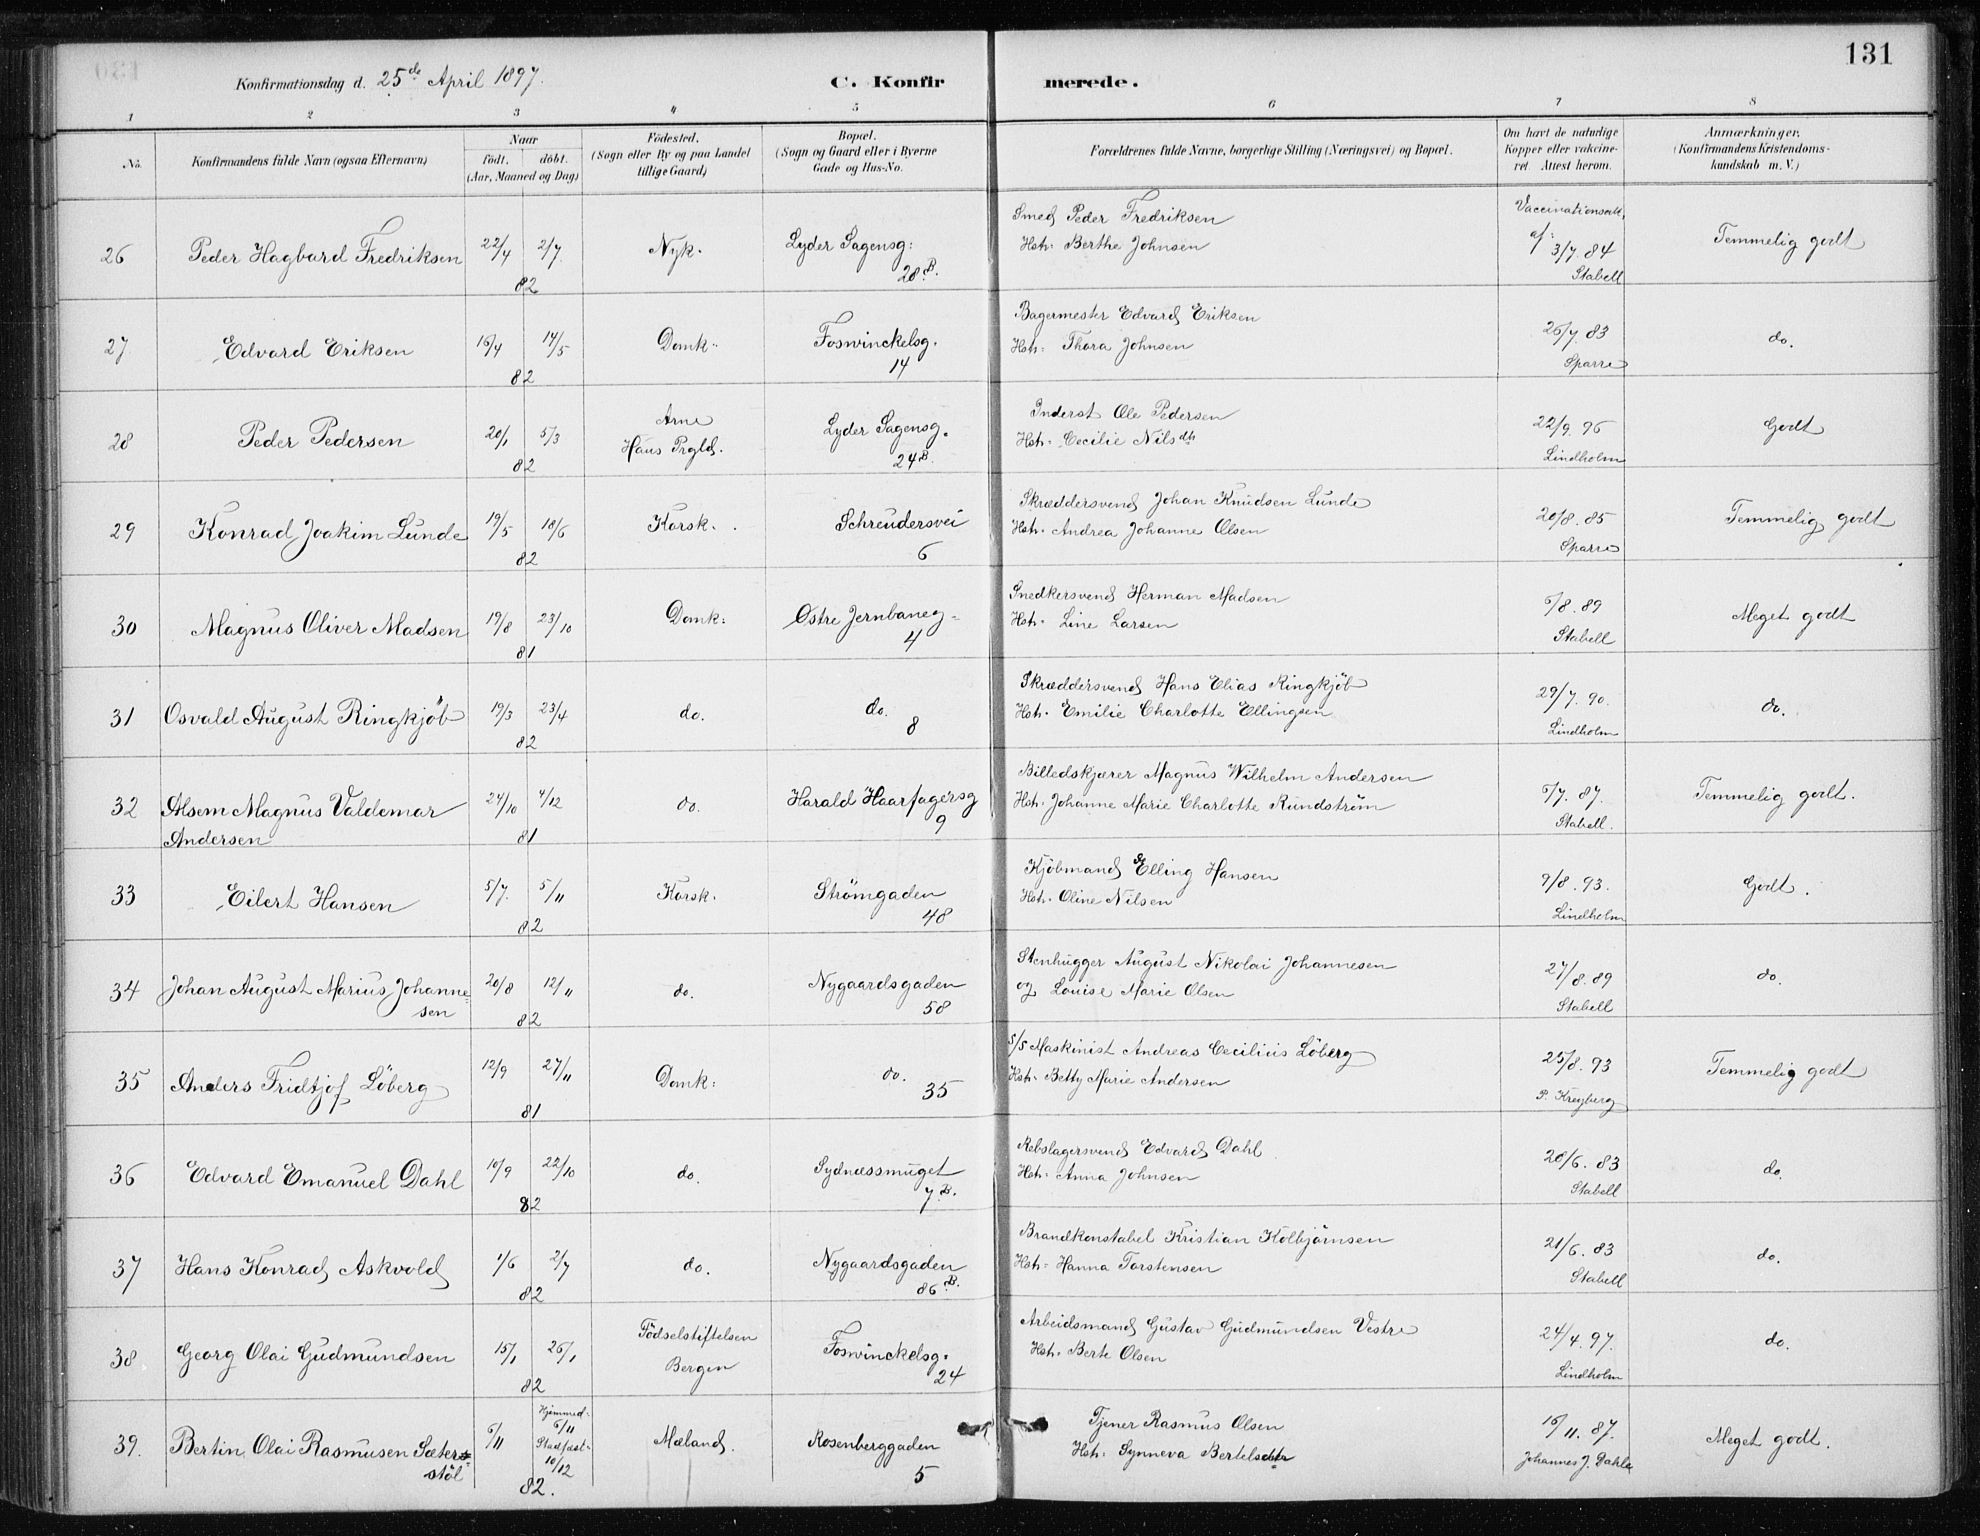 131
Konfirmationsdag d. 25de April 1897.
C. Konfirmerede.
1 2 3 4 5 6 7 8
No.
Konfirmandens fulde Navn (ogsaa Efternavn)
Naar
født. døbt.
(Aar, Maaned og Dag)
Födested.
(Sogn eller By og paa Landet
tillige Gaard)
Bopæl.
(Sogn og Gaard eller i Byerne
Gade og Hus-No.
Forældrenes fulde Navne, borgerlige Stilling (Næringsvei) og Bopæl.
Om havt de naturlige
Kopper eller vakcine-
ret. Attest herom.
Anmærkninger.
(Konfirmandens Kristendoms-
kundskab m. V.)
26 Peder Hagbard Fredriksen 22/4 2/7 82 Nyk. Lyder Sagensg: 28 B.
Smed Peder Fredriksen
Hst: Berthe Johnsen
Vaccinationsatt.
af: 3/7. 84
Stabell
Temmelig godt
27 Edvard Eriksen 16/4 14/5 82 Domk. Foswinckelsg. 14
Bagermester Edvard Eriksen
Hst: Thora Johnsen
26/7. 83
Sparre
do.
28 Peder Pedersen 20/1 5/3 82 Arne
Haus Prgld. Lyder Sagensg. 24 B.
Inderst Ole Pedersen
Hst: Cecilie Nilsdtr
22/9. 96
Lindholm
Godt
29 Konrad Joakim Lunde 19/5 18/6 82 Korsk. Schreudersvei 6
Skræddersvend Johan Knudsen Lunde
Hst. Andrea Johanne Olsen
20/8. 85
Sparre
Temmelig godt
30 Magnus Oliver Madsen 19/8 23/10 81 Domk: Østre Jernbaneg. 4
Snedkersvend Herman Madsen
Hst. Line Larsen
6/8. 89
Stabell
Meget godt
31 Osvald August Ringkjöb 19/3 23/4 82 do. do. 8
Skræddersvend Hans Elias Ringkjöb
Hst. Emilie Charlotte Ellingsen
29/7. 90.
Lindholm
do.
32 Alsem Magnus Valdemar
Andersen 24/10 4/12 81 do. Harald Haarfagersg 9
Billedskjærer Magnus Wilhelm Andersen
Hst. Johanne Marie Charlotte Rundström
6/7. 87.
Stabell.
Temmelig godt.
33 Eilert Hansen 5/7. 5/11 82 Korsk. Strömgaden 48
Kjöbmand Elling Hansen
Hst. Oline Nilsen
9/8. 93.
Lindholm
Godt.
34 Johan August Marius Johanne-
sen 20/8 12/11 82 do. Nygaardsgaden 58
Stenhugger August Nikolai Johannesen
og Louise Marie Olsen
27/8. 89
Stabell
do.
35 Anders Fridtjof Löberg 12/9 27/11 81 Domk: do. 35
S/S Maskinist Andreas Cecilius Löberg
Hst. Betty Marie Andersen
25/8. 93
P. Kreyberg
Temmelig godt
36 Edvard Emanuel Dahl 10/9 22/10 82 do. Sydnæssmuget 7 B.
Rebslagersvend Edvard Dahl
Hst: Anna Johnsen
20/6. 83
Stabell
do.
37 Hans Konrad Askvold 1/6 2/7 82 do. Nygaardsgaden 86 B.
Brandkonstabel Kristian Kolbjørnsen
Hst: Hanna Torstensen
21/6. 83
Stabell
do.
38 Georg Olai Gudmundsen 15/1 26/1 82 Födselstiftelsen
Bergen Foswinckelsg. 24
Arbeidsmand Gustav Gudmundsen Vestre
Hst. Berte Olsen
24/4. 97.
Lindholm
do.
39. Bertin Olai Rasmusen Sæter-
stöl 6/11 Hjemmed: 6/11
Stadfæst: 10/12 82. Mæland. Rosenberggaden 5
Tjener Rasmus Olsen
Hst: Synneva Bertelsdtr
16/11. 87.
Johannes J. Dahle
Meget godt.